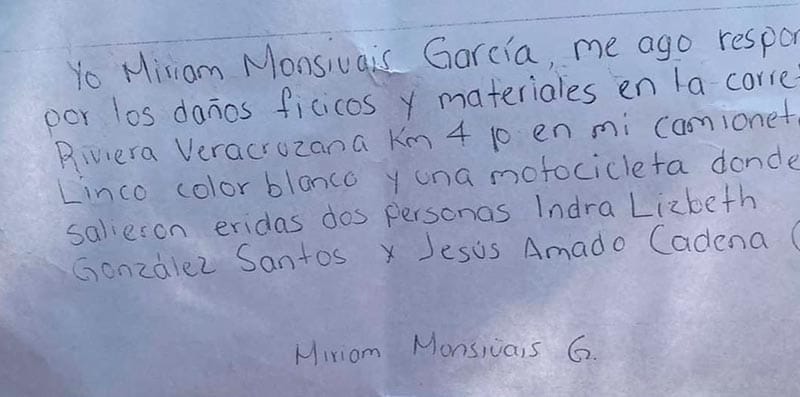 Yo Miriam Monsivais García, me ago respon
por los daños ficicos y materiales en la corre
Riviera Veracruzana Km 4 10 en mi camionet
Linco color blanco y una motocicleta donde
salieron eridas dos personas Indra Lizbeth
González Santos y Jesús Amado Cadena
Miriam Monsivais G.